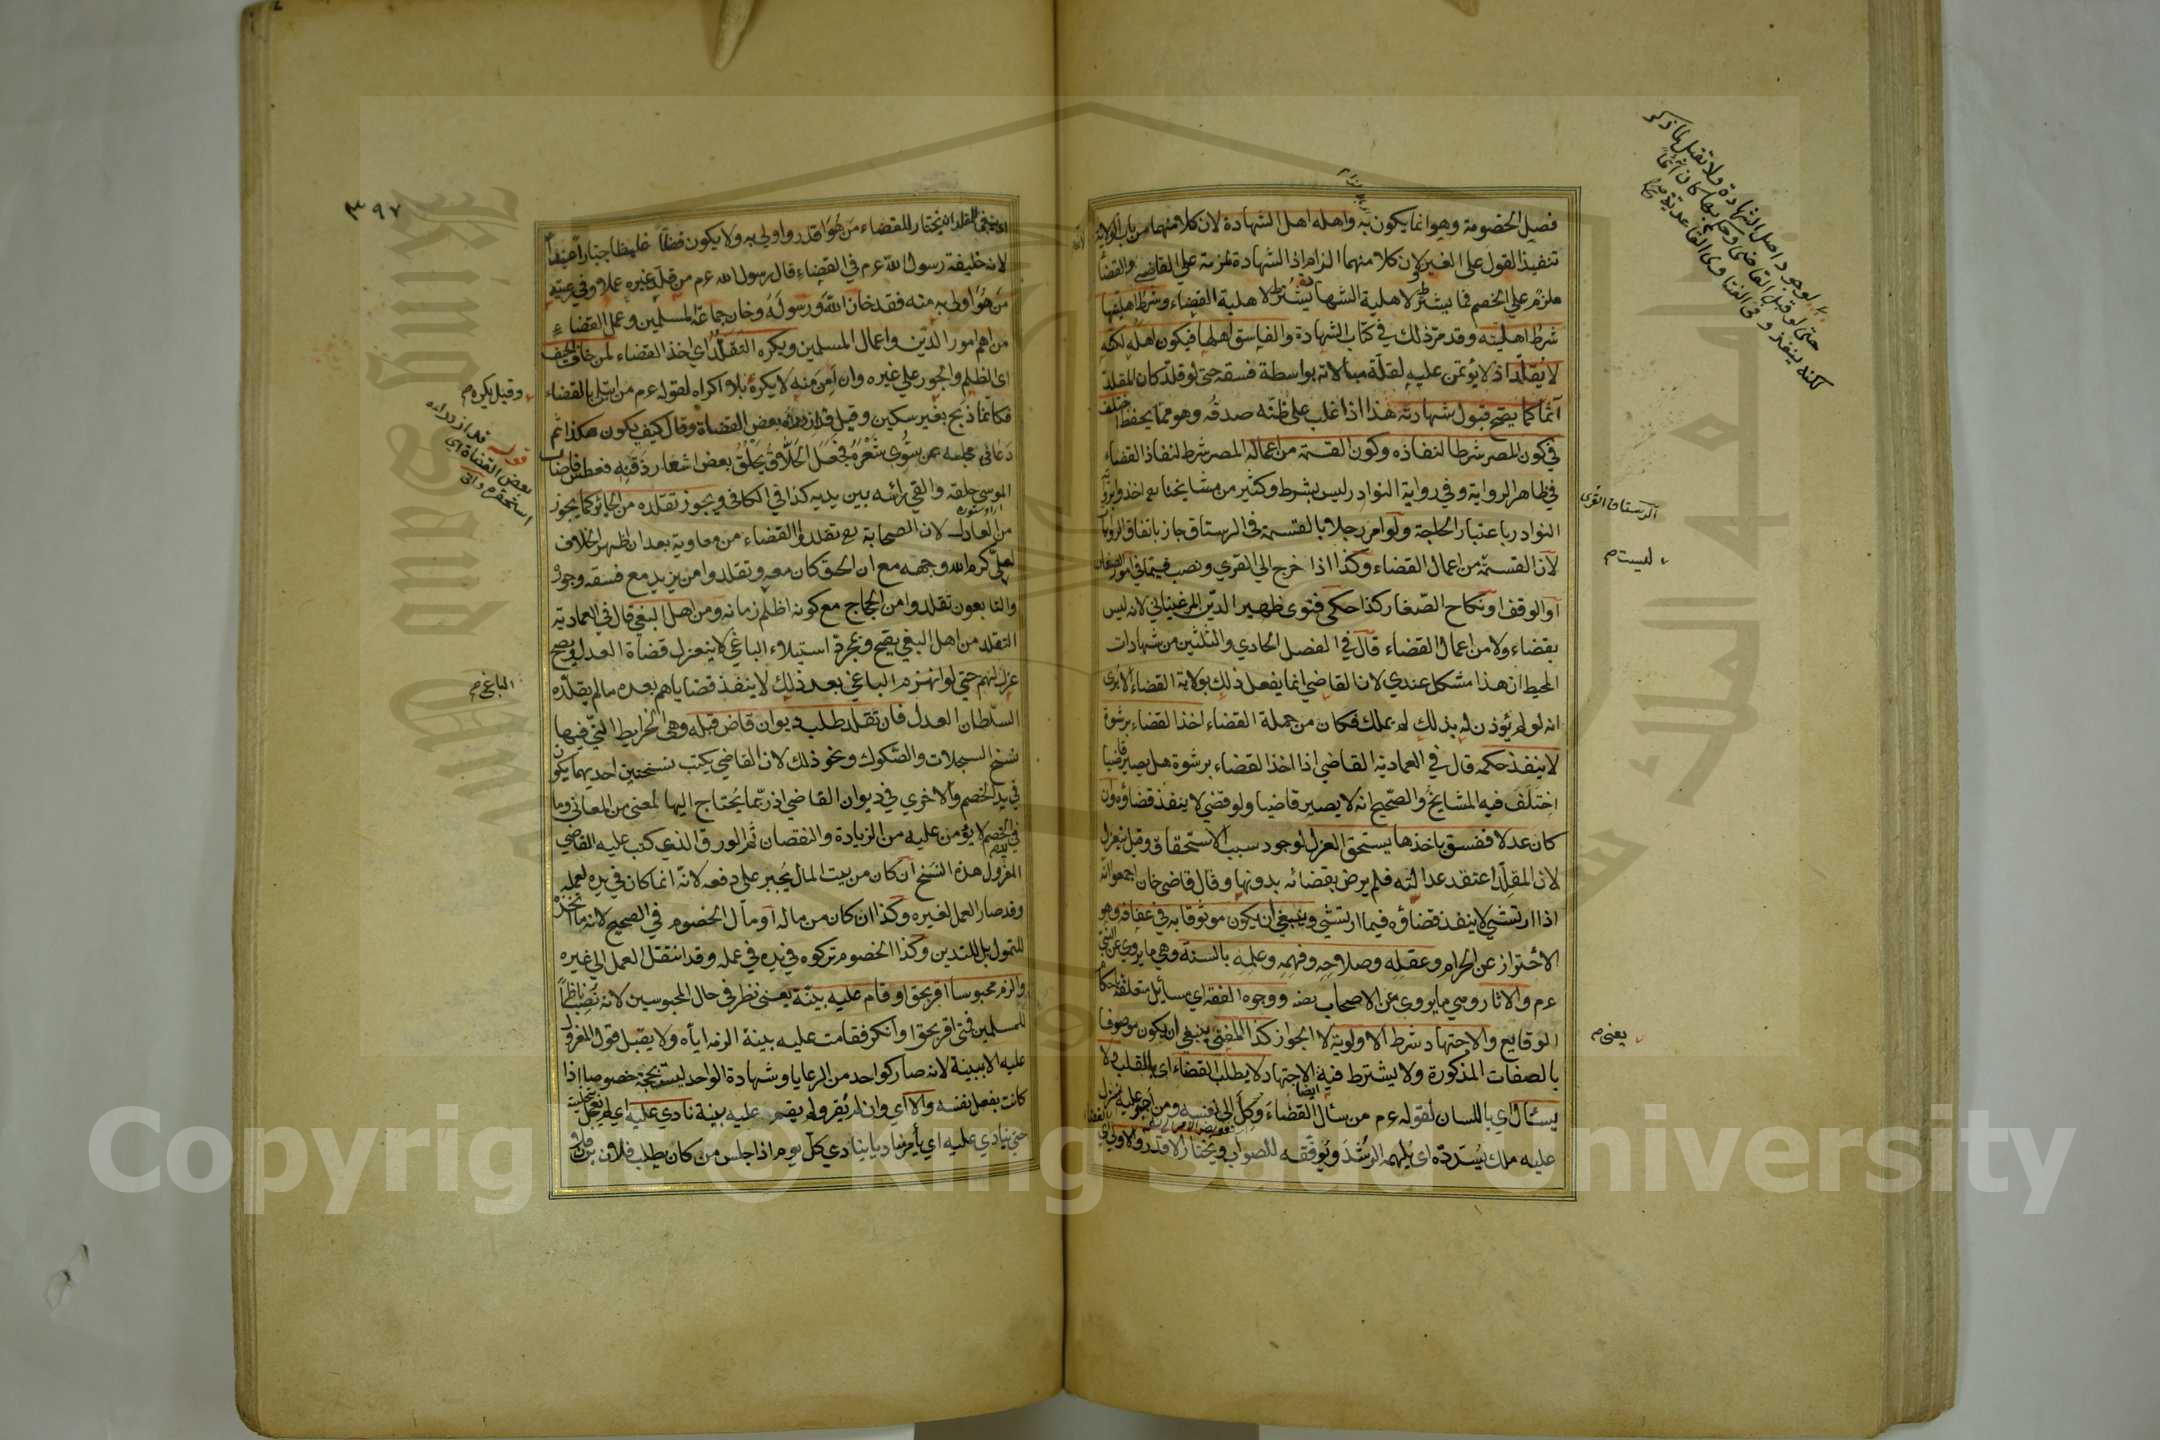 فصل الخصومة وهو انما يكون به واهله اهل الشهادة لان كلا منهما من باب الولاية
تنفيذ القول على الغير لان كلا منهما الزام اذ الشهادة ملزمة على القاضي والقضأ
ملزم على الخصم فما يشترط لاهلية الشهادة يشترط لاهلية القضاء وشرط اهليتها
شرط اهليته وقد مر ذلك في كتاب الشهادة والفاسق اهلها فيكون اهله لكنه
لا يقلد اذ لا يؤتمن عليه لقلة مبالاته بواسطة فسقه حتى لو قلد كان المقلد
آثما كما يصح قبول شهادته هذا اذا غلب على ظنه صدقه وهو مما يحفظ اختلف
في كون المصر شرطا لنفاذه وكون القسمة من اعماله المصر شرط لنفاذ القضاء
في ظاهر الرواية وفي رواية النوادر ليس بشرط وكثير من مشايخنا رح اخذوا برواية
النوادر باعتبار الحاجة ولو امر رجلا بالقسمة في الرستاق جاز باتفاق الروايا
لان القسمة من اعمال القضاء وكذا اذا خرج الى القرى ونصب قيما في امور الصغار
او الوقف او نكاح الصغار كذا حكى فتوى ظهير الدين المرغيناني لانه ليس
بقضاء ولا من اعمال القضاء قال في الفصل الحادي والثلثين من شهادات
المحيط ان هذا مشكل عندي لان القاضي انما يفعل ذلك بولاية القضاء الا يرى
انه لو لم يؤذن له بذلك لم يملك فكان من جملة القضاء اخذ القضاء برشوة
لا ينفذ حكمه قال في العمادية القاضي اذا اخذ القضاء برشوة هل يصير قاضيا
اختلف فيه المشايخ والصحيح انه لا يصير قاضيا ولو قضى لا ينفذ قضاؤه وان
كان عدلا ففسق باخذها يستحق العزل لوجود سبب الاستحقاق وقيل ينعزل
لان المقلد اعتقد عدالته فلم يرض بقضائه بدونها وقال قاضي خان اجمعوا انه
اذا ارتشى لا ينفذ قضاؤه فيما ارتشى وينبغي ان يكون موثوقا به في عفافه وهو
الاحتراز عن الحرام وعقله وصلاحه وفهمه وعلمه بالسنة وهي ما يروى عن النبي
عم والاثار وهي ما يروى عن الاصحاب رضه ووجوه الفقه اي مسائل متعلقة باحكام
الوقايع والاجتهاد شرط الاولوية لا الجواز كذا المفتي ينبغي ان يكون موصوفا
بالصفات المذكورة ولا يشترط فيه الاجتهاد لا يطلب القضاء اي بالقلب ولا
يسئال اي باللسان لقوله عم من سئال القضاء وكل الى نفسه ومن اجبر عليه نزل
عليه ملك يسدده اي يلهمه الرشد ويوفقه للصواب ويختار الاقدر والاولى
لوجود اهل الشهادة ولا تقبل لما ذكر
حتى لو قبل القاضي وحكم بها كان آثما
لكنه ينفذ وفي الفتاوى القاعدية
الرستاق القرى
ليست م
يعني م
٣٩٧
يختار للقضاء من هو اقدر واولى به ولا يكون فظا غليظا جبارا عنيفا
لانه خليفة رسول الله عم في القضاء قال رسول الله عم من قلد غيره عملا وفي رعيته
من هو اولى به منه فقد خان الله ورسوله وخان جماعة المسلمين وعمل القضاء
من اهم امور الدين واعمال المسلمين ويكره التقلد اي اخذ القضاء لمن خاف الحيف
اي الظلم والجور على غيره وان امن منه لا يكره بلا اكراه لقوله عم من ابتلي بالقضاء
فكانما ذبح بغير سكين وقيل قد ازدراه بعض القضاة وقال كيف يكون هكذا ثم
دعا في مجلسه بمن يسوي شعره فجعل الحلاق يحلق بعض اشعار ذقنه فعطس فاصاب
الموسى حلقه والقى رأسه بين يديه كذا في الكافي ويجوز تقلده من الجائر كما يجوز
من العادل لان الصحابة رض تقلدوا القضاء من معاوية بعد ان اظهر الخلاف
لعلي كرم الله وجهه مع ان الحق كان معه وتقلدوا من يزيد مع فسقه وجوره
والتابعون تقلدوا من الحجاج مع كونه اظلم زمانه ومن اهل البغي قال في العمادية
التقلد من اهل البغي يصح وبمجرد استيلاء الباغي لا ينعزل قضاة العدل ويصح
عزل لهم حتى لو انهزم الباغي بعد ذلك لا ينفذ قضاياهم بعده ما لم يقلده
السلطان العدل فان تقلد طلب ديوان قاض قبله وهي الخرايط التي فيها
نسخ السجلات والصكوك ونحو ذلك لان القاضي يكتب نسختين احديهما يكون
في يد الخصم والاخرى في ديوان القاضي اذ ربما يحتاج اليها لمعنى من المعاني وما
في الخصم لا يؤمن عليه من الزيادة والنقصان ثم الورق الذي كتب عليه القاضي
المعزول هذه النسخ ان كان من بيت المال يجبر على دفعه لانه انما كان في يده لعمله
وقد صار العمل لغيره وكذا ان كان من ماله او مال الخصوم في الصحيح لانه ما اتخذه
للتمول بل للتدين وكذا الخصوم تركوه في يده في عمله وقد انتقل العمل الى غيره
والزم محبوسا اقر بحق او قام عليه بينة يعني نظر في حال المحبوسين لانه نصب ناظرا
للمسلمين فمتى اقر بحق او انكر فقامت عليه بينة الزمه اياه ولا يقبل قول المعزول
عليه الا ببينة لانه صار كواحد من الرعايا وشهادة الواحد ليست بحجة خصوصا اذا
كانت بفعل نفسه والا اي وان لم يقر ولم يقم عليه بينة نادى عليه اي لم يعجل
حتى ينادي عليه اي يأمر مناديا ينادي كل يوم اذا جلس من كان يطلب فلان بن فلان
وقيل يكره م
قوله قد ازدراه
بعض القضاة اي
استحقره
الباغي م
Copyright © King Saud University